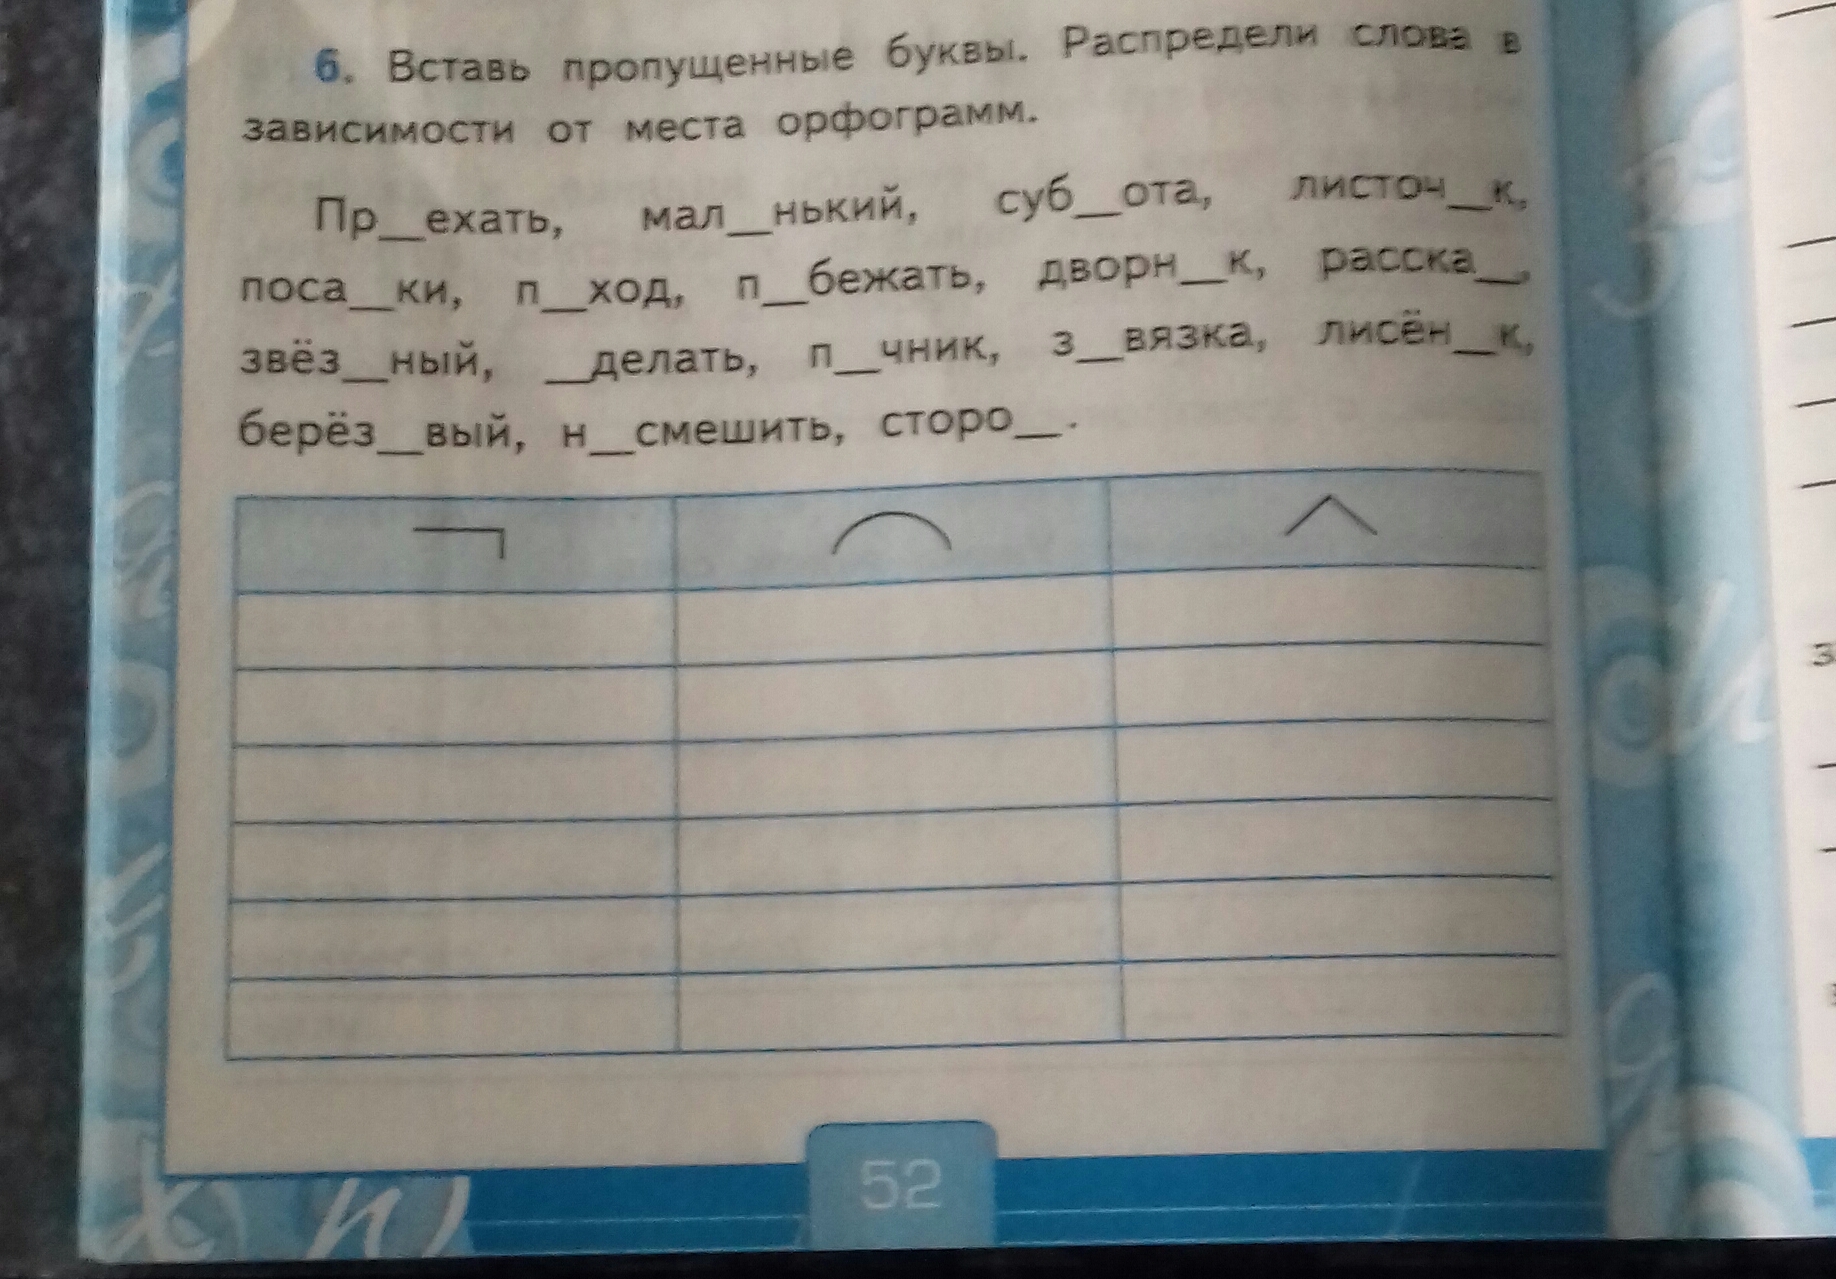 6. Вставь пропущенные буквы. Распредели слова в
зависимости от места орфограмм.
Пр__ехать, мал__нький, суб__ота, листоч__к,
поса__ки, п__ход, п__бежать, дворн__к, расска__,
звёз__ный, __делать, п__чник, з__вязка, лисён__к,
берёз__вый, н__смешить, сторо__.
52